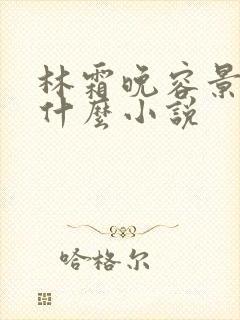 林霜晚容景
什麼小説
哈格尔